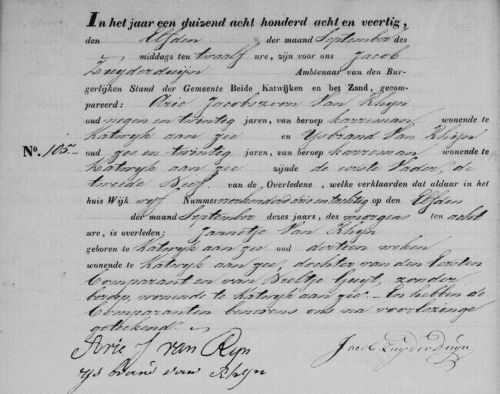 In het jaar een duizend acht honderd acht en veertig,
den Elfden der maand September des
middags ten twaalf ure, zijn voor ons Jacob
Zuyderduijn Ambtenaar van den Bur-
gerlijken Stand der Gemeente Beide Katwijken en het Zand, gecom-
pareerd: Arie Jacobszoon Van Rhijn
oud negen en twintig jaren, van beroep karreman, wonende te
Katwijk aan Zee en Ysbrand Van Rhijn
No. 105. oud zes en twintig jaren, van beroep karreman wonende te
Katwijk aan Zee zijnde de eerste Vader, de
tweede Neef van de Overledene, welke verklaarden dat aldaar in het
huis Wijk vijf Nummer vierhonderd drie en tachtig op den Elfden
der maand September dezes jaars, des morgens ten acht
ure, is overleden; Jannetje Van Rhijn
geboren te Katwijk aan Zee oud dertien weken
wonende te Katwijk aan Zee, dochter van den Eersten
Comparant en van Neeltje Guijt, zonder
beroep, wonende te Katwijk aan Zee. En hebben de
Comparanten benevens ons na voorlezinge
geteekend.
Arie J van Ryn
ysbrand van Rhijn
Jacob Zuyderduijn